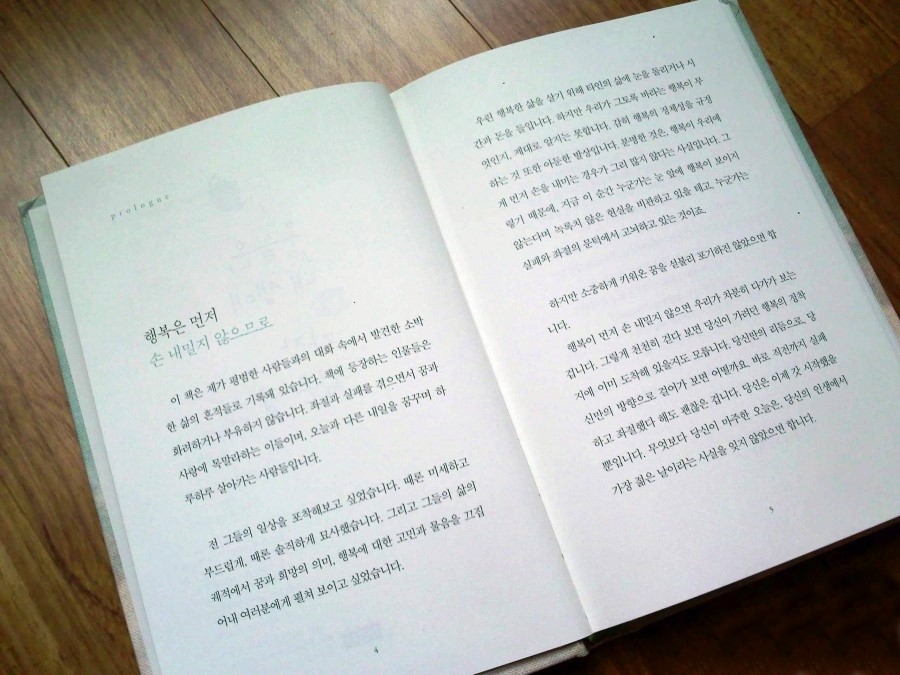 prologue
행복은 먼저
손 내밀지 않으므로
이 책은 제가 평범한 사람들과의 대화 속에서 발견한 소박
한 삶의 흔적들로 기록돼 있습니다. 책에 등장하는 인물들은
화려하거나 부유하지 않습니다. 좌절과 실패를 겪으면서 꿈과
사랑에 목말라하는 이들이며, 오늘과 다른 내일을 꿈꾸며 하
루하루 살아가는 사람들입니다.
전 그들의 일상을 포착해보고 싶었습니다. 때론 미세하고
부드럽게, 때론 솔직하게 묘사했습니다. 그리고 그들의 삶의
궤적에서 꿈과 희망의 의미, 행복에 대한 고민과 물음을 끄집
어내 여러분에게 펼쳐 보이고 싶었습니다.
4
우린 행복한 삶을 살기 위해 타인의 삶에 눈을 돌리거나 시
간과 돈을 들입니다. 하지만 우리가 그토록 바라는 행복이 무
엇인지, 제대로 알지는 못합니다. 감히 행복의 정체성을 규정
하는 것 또한 아둔한 발상입니다. 분명한 것은, 행복이 우리에
게 먼저 손을 내미는 경우가 그리 많지 않다는 사실입니다. 그
렇기 때문에, 지금 이 순간 누군가는 눈 앞에 행복이 보이지
않는다며 녹록치 않은 현실을 비관하고 있을 테고, 누군가는
실패와 좌절의 문턱에서 고뇌하고 있는 것이죠.
하지만 소중하게 키워온 꿈을 섣불리 포기하진 않았으면 합
니다.
행복이 먼저 손 내밀지 않으면 우리가 차분히 다가가 보는
겁니다. 그렇게 천천히 걷다 보면 당신이 가려던 행복의 정착
지에 이미 도착해 있을지도 모릅니다. 당신만의 리듬으로, 당
신만의 방향으로 걸어가 보면 어떨까요. 바로 직전까지 실패
하고 좌절했다 해도 괜찮은 겁니다. 당신은 이제 갓 시작했을
뿐입니다. 무엇보다 당신이 마주한 오늘은, 당신의 인생에서
가장 젊은 날이라는 사실을 잊지 않았으면 합니다.
5